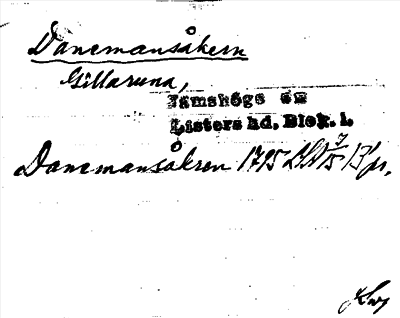 Danemansåkern
Gillaruna,
Jämshögs sn
Listers hd, Blek. l.
Danemansåkren 1795